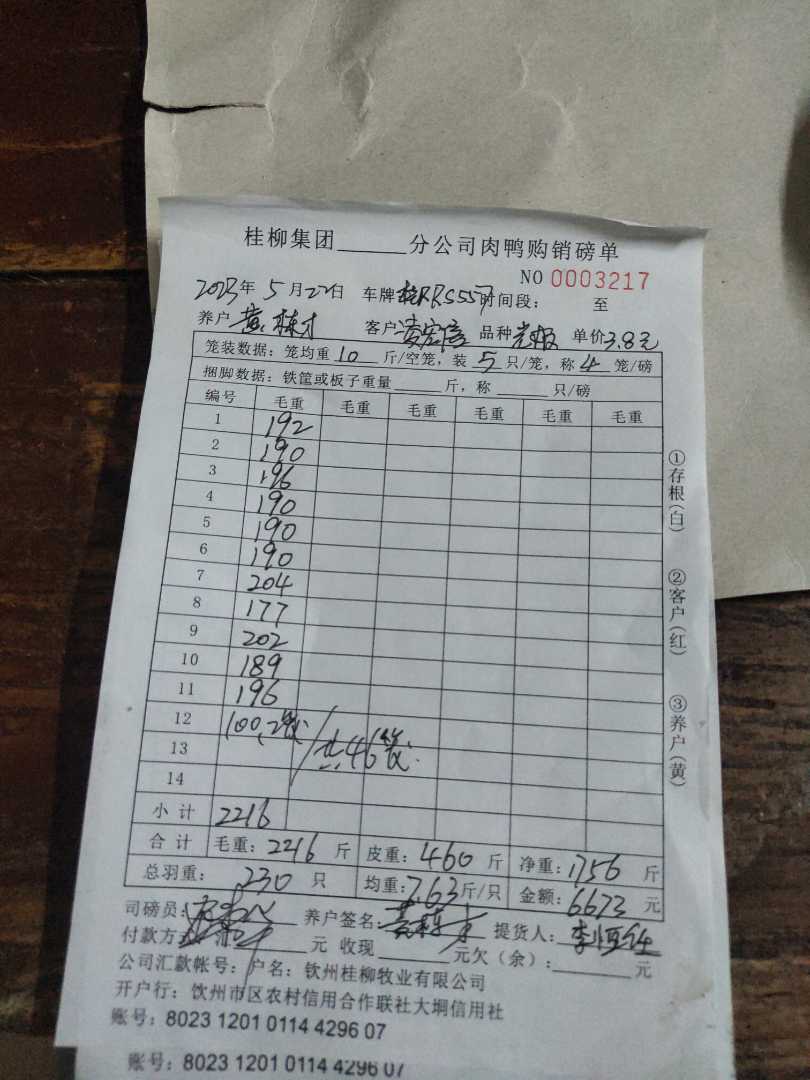 桂柳集团______分公司肉鸭购销磅单
NO 0003217
2023年 5月22日 车牌 时间段： 至
养户 黄栋才 客户 凌宏信 品种 单价3.8元
笼装数据：笼均重 10 斤/空笼，装 5 只/笼，称 4 笼/磅
捆脚数据：铁筐或板子重量____斤，称____只/磅
编号 毛重 毛重 毛重 毛重 毛重 毛重
1 192
2 190
3 196
4 190
5 190
6 190
7 204
8 177
9 202
10 189
11 196
12 100,2笼
13 共46笼
14
小计 2216
合计 毛重：2216 斤 皮重：460 斤 净重：1756 斤
总羽重： 230 只 均重：7.63斤/只 金额：6673 元
司磅员： 养户签名：黄栋才 提货人：
付款方式 元 收现______元欠（余）：______元
公司汇款帐号：户名：钦州桂柳牧业有限公司
开户行：钦州市区农村信用合作联社大垌信用社
账号：8023 1201 0114 4296 07
账号：8023 1201 0114 4296 07
①存根(白)
②客户(红)
③养户(黄)